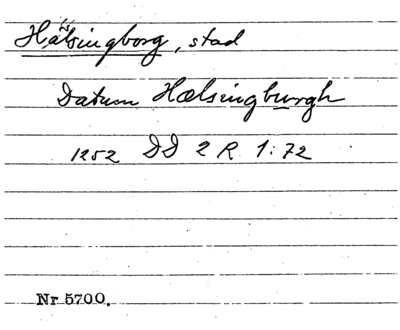 Hälsingborg, stad
Datum Hælsingburgh
1252 DD 2 R 1:72
Nr 5700.